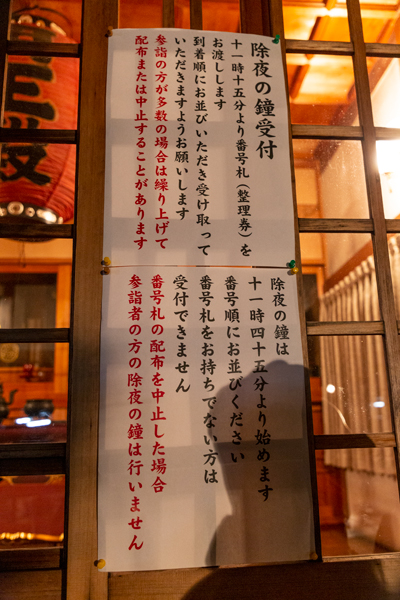 除夜の鐘受付
十一時十五分より番号札（整理券）を
お渡しします
到着順にお並びいただき受け取って
いただきますようお願いします
参詣の方が多数の場合は繰り上げて
配布または中止することがあります
除夜の鐘は
十一時四十五分より始めます
番号順にお並びください
番号札をお持ちでない方は
受付できません
番号札の配布を中止した場合
参詣者の方の除夜の鐘は行いません